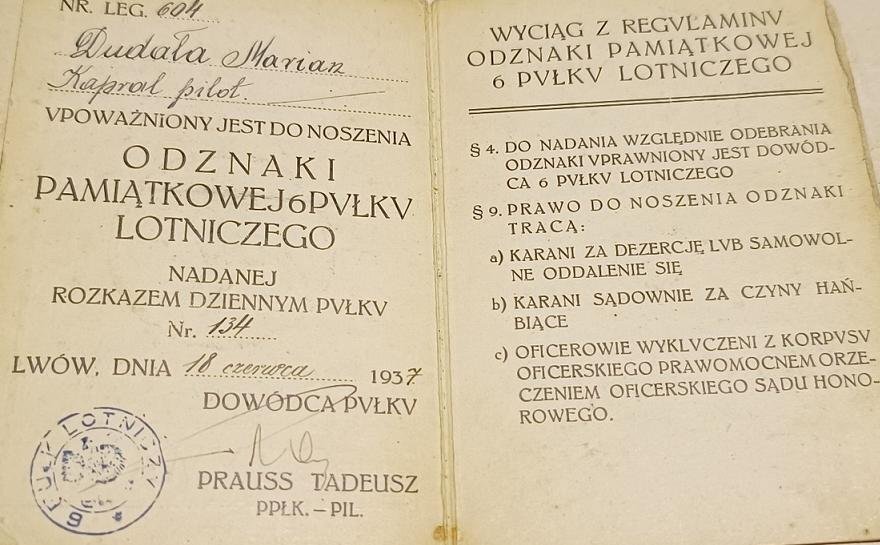 NR. LEG. 604
Dudała Marian
Kapral pilot.
VPOWAŻNIONY JEST DO NOSZENIA
ODZNAKI
PAMIĄTKOWEJ 6 PVŁKV
LOTNICZEGO
NADANEJ
ROZKAZEM DZIENNYM PVŁKV
Nr. 134
LWÓW, DNIA 18 czerwca 1937
DOWÓDCA PVŁKV
PRAUSS TADEUSZ
PPŁK. – PIL.
6 PUŁK LOTNICZY
WYCIĄG Z REGVLAMINV
ODZNAKI PAMIĄTKOWEJ
6 PVŁKV LOTNICZEGO
§ 4. DO NADANIA WZGLĘDNIE ODEBRANIA
ODZNAKI VPRAWNIONY JEST DOWÓD-
CA 6 PVŁKV LOTNICZEGO
§ 9. PRAWO DO NOSZENIA ODZNAKI
TRACĄ:
a) KARANI ZA DEZERCJĘ LVB SAMOWOL-
NE ODDALENIE SIĘ
b) KARANI SĄDOWNIE ZA CZYNY HAŃ-
BIĄCE
c) OFICEROWIE WYKLVCZENI Z KORPVSV
OFICERSKIEGO PRAWOMOCNEM ORZE-
CZENIEM OFICERSKIEGO SĄDU HONO-
ROWEGO.